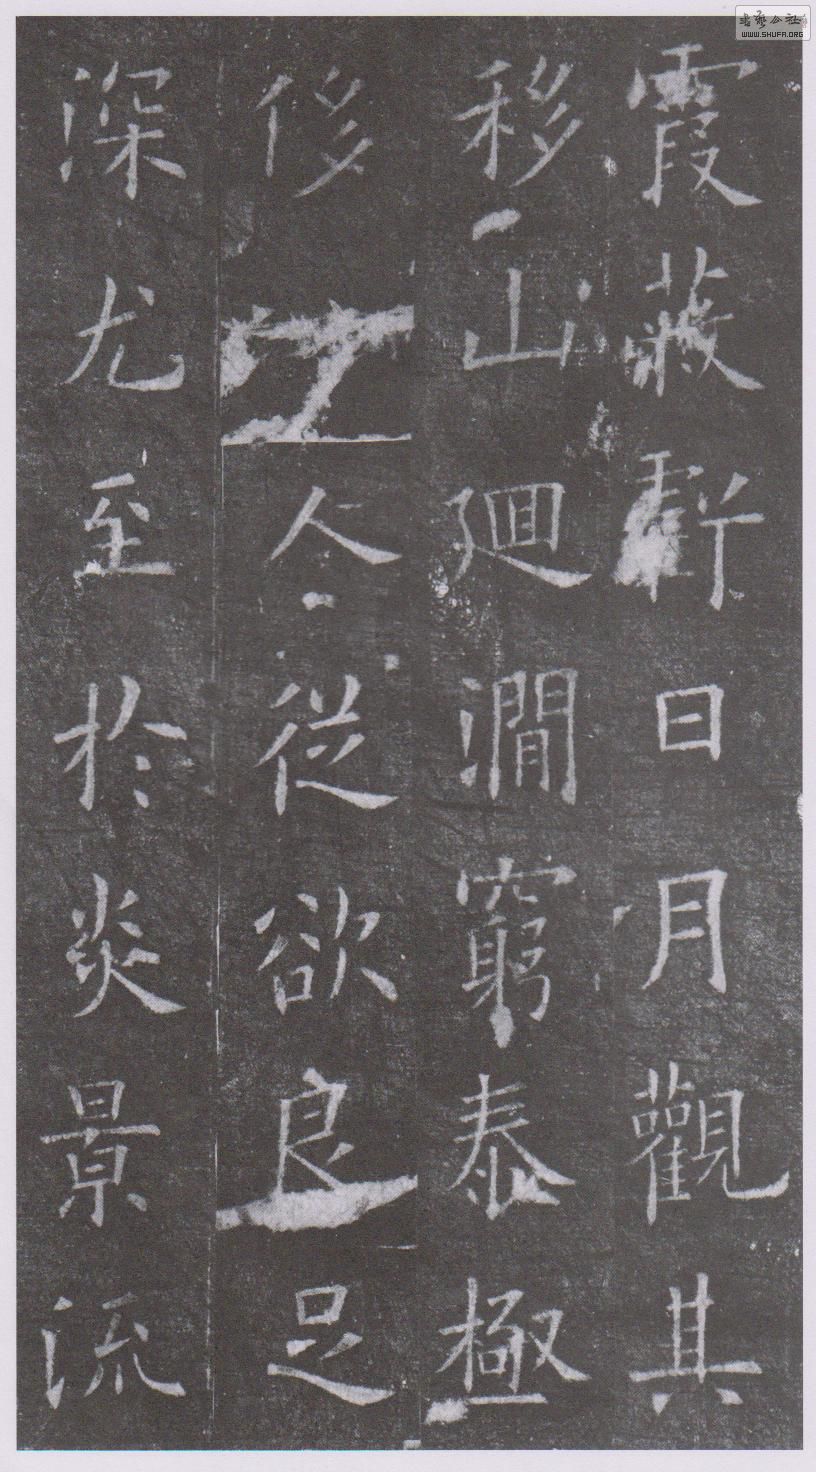 霞蔽虧日月觀其
移山迴澗窮泰極
侈人從欲良足
深尤至於炎景流
書藝公社
WWW.SHUFA.ORG